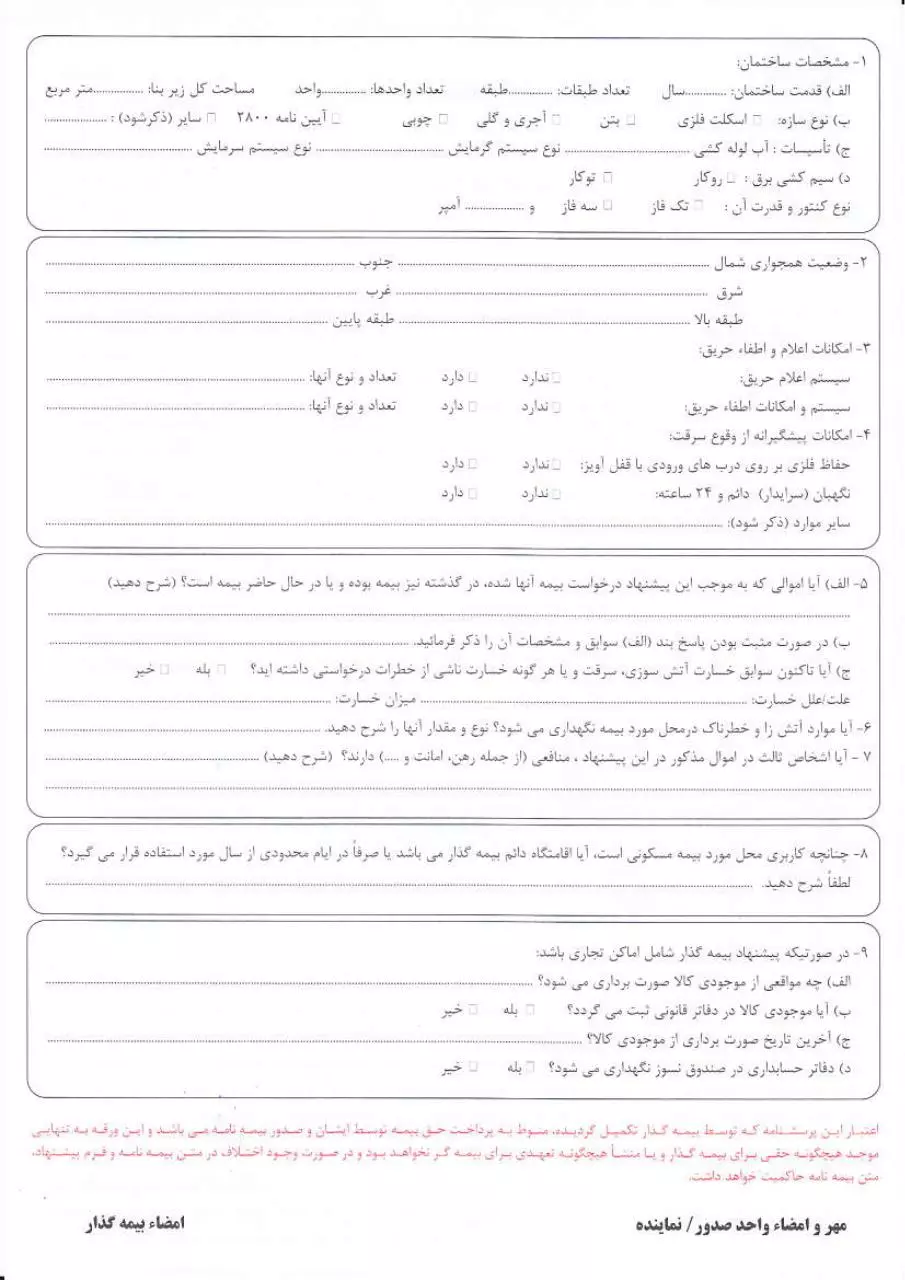 ۱- مشخصات ساختمان:
الف) قدمت ساختمان: ..............سال تعداد طبقات: ..............طبقه تعداد واحدها: ..............واحد مساحت کل زیر بنا: ................متر مربع
ب) نوع سازه: □ اسکلت فلزی □ بتن □ آجری و گلی □ چوبی □ آیین نامه ۲۸۰۰ □ سایر (ذکرشود) : ....................
ج) تأسیسات : آب لوله کشی ........................................ نوع سیستم گرمایش ........................................ نوع سیستم سرمایش ........................................
د) سیم کشی برق : □ روکار □ توکار
نوع کنتور و قدرت آن : □ تک فاز □ سه فاز و .................. آمپر
۲- وضعیت همجواری شمال ........................................ جنوب ........................................
شرق ........................................ غرب ........................................
طبقه بالا ........................................ طبقه پایین ........................................
۳- امکانات اعلام و اطفاء حریق:
سیستم اعلام حریق: □ ندارد □ دارد تعداد و نوع آنها: ........................................
سیستم و امکانات اطفاء حریق: □ ندارد □ دارد تعداد و نوع آنها: ........................................
۴- امکانات پیشگیرانه از وقوع سرقت:
حفاظ فلزی بر روی درب های ورودی با قفل آویز: □ ندارد □ دارد
نگهبان (سرایدار) دائم و ۲۴ ساعته: □ ندارد □ دارد
سایر موارد (ذکر شود): ........................................
۵- الف) آیا اموالی که به موجب این پیشنهاد درخواست بیمه آنها شده، در گذشته نیز بیمه بوده و یا در حال حاضر بیمه است؟ (شرح دهید)
........................................
ب) در صورت مثبت بودن پاسخ بند (الف) سوابق و مشخصات آن را ذکر فرمائید. ........................................
ج) آیا تاکنون سوابق خسارت آتش سوزی، سرقت و یا هر گونه خسارت ناشی از خطرات درخواستی داشته اید؟ □ بله □ خیر
علت/علل خسارت: ........................................ میزان خسارت: ........................................
۶- آیا موارد آتش زا و خطرناک درمحل مورد بیمه نگهداری می شود؟ نوع و مقدار آنها را شرح دهید. ........................................
۷ - آیا اشخاص ثالث در اموال مذکور در این پیشنهاد ، منافعی (از جمله رهن، امانت و .....) دارند؟ (شرح دهید) ........................................
........................................
۸- چنانچه کاربری محل مورد بیمه مسکونی است، آیا اقامتگاه دائم بیمه گذار می باشد یا صرفاً در ایام محدودی از سال مورد استفاده قرار می گیرد؟
لطفاً شرح دهید. ........................................
۹- در صورتیکه پیشنهاد بیمه گذار شامل اماکن تجاری باشد:
الف) چه مواقعی از موجودی کالا صورت برداری می شود؟ ........................................
ب) آیا موجودی کالا در دفاتر قانونی ثبت می گردد؟ □ بله □ خیر
ج) آخرین تاریخ صورت برداری از موجودی کالا؟ ........................................
د) دفاتر حسابداری در صندوق نسوز نگهداری می شود؟ □ بله □ خیر
اعتبار این پرسشنامه که توسط بیمه گذار تکمیل گردیده، منوط به پرداخت حق بیمه توسط ایشان و صدور بیمه نامه می باشد و این ورقه به تنهایی
موجد هیچگونه حقی برای بیمه گذار و یا منشأ هیچگونه تعهدی برای بیمه گر نخواهد بود و در صورت وجود اختلاف در متن بیمه نامه و فرم پیشنهاد،
متن بیمه نامه حاکمیت خواهد داشت.
مهر و امضاء واحد صدور / نماینده امضاء بیمه گذار